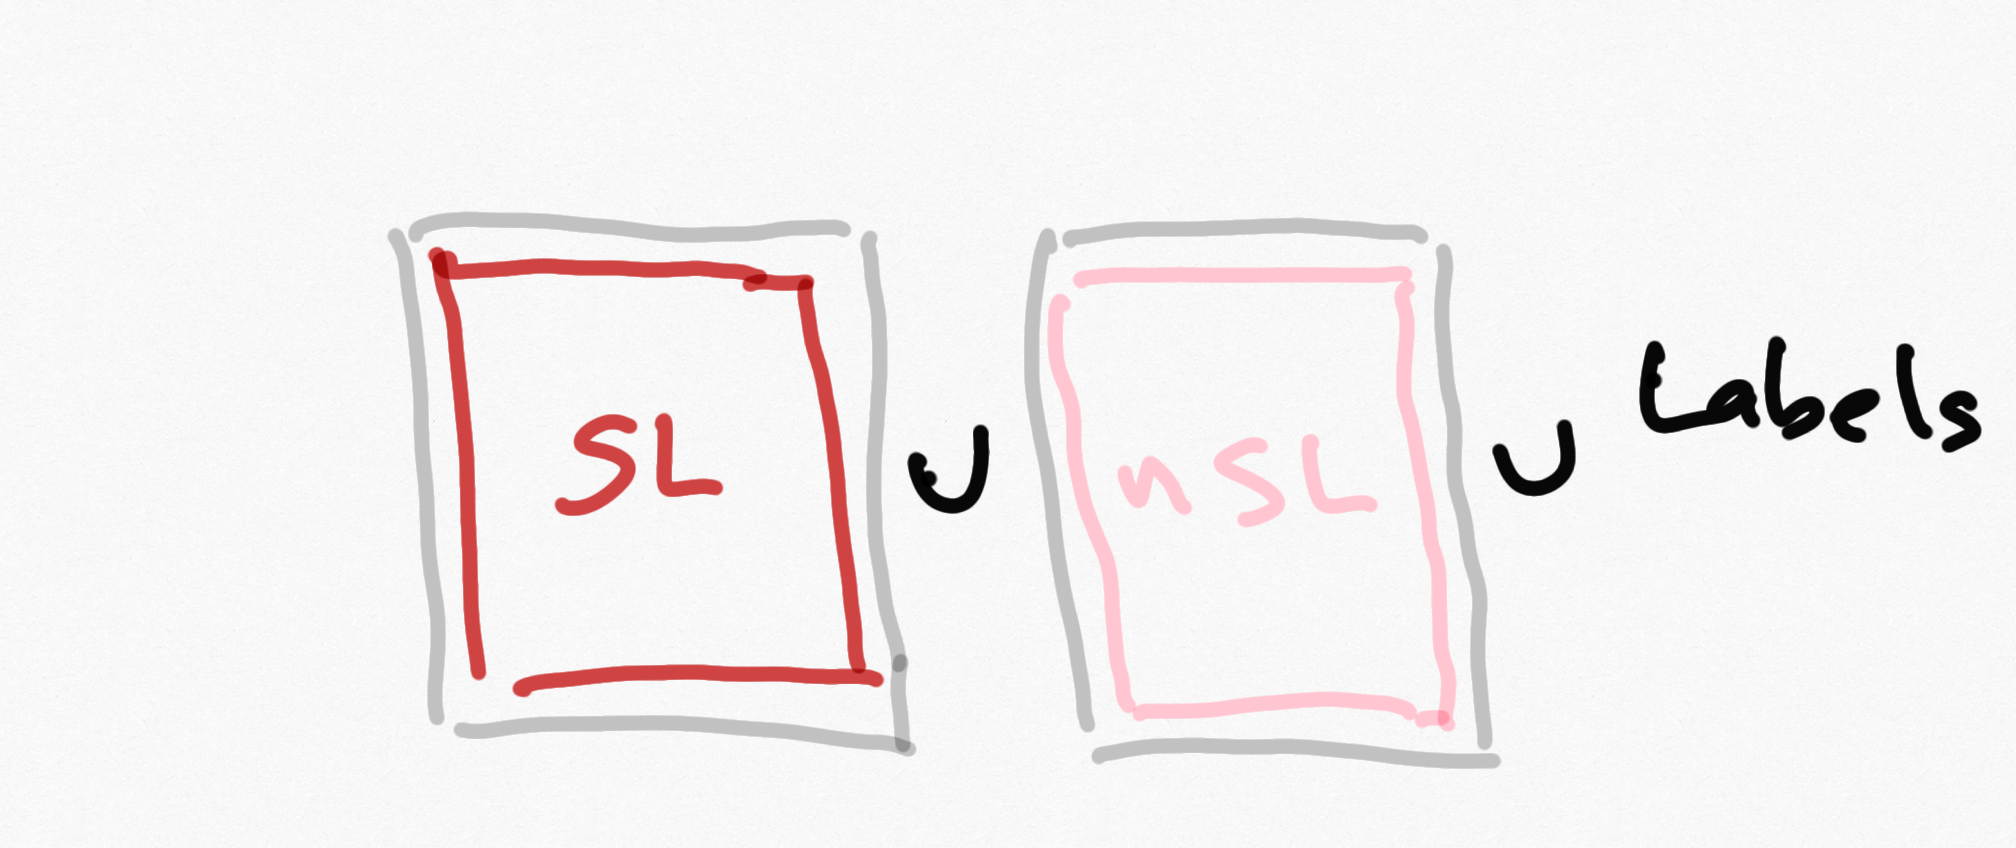 SL ∪ nSL ∪ Labels